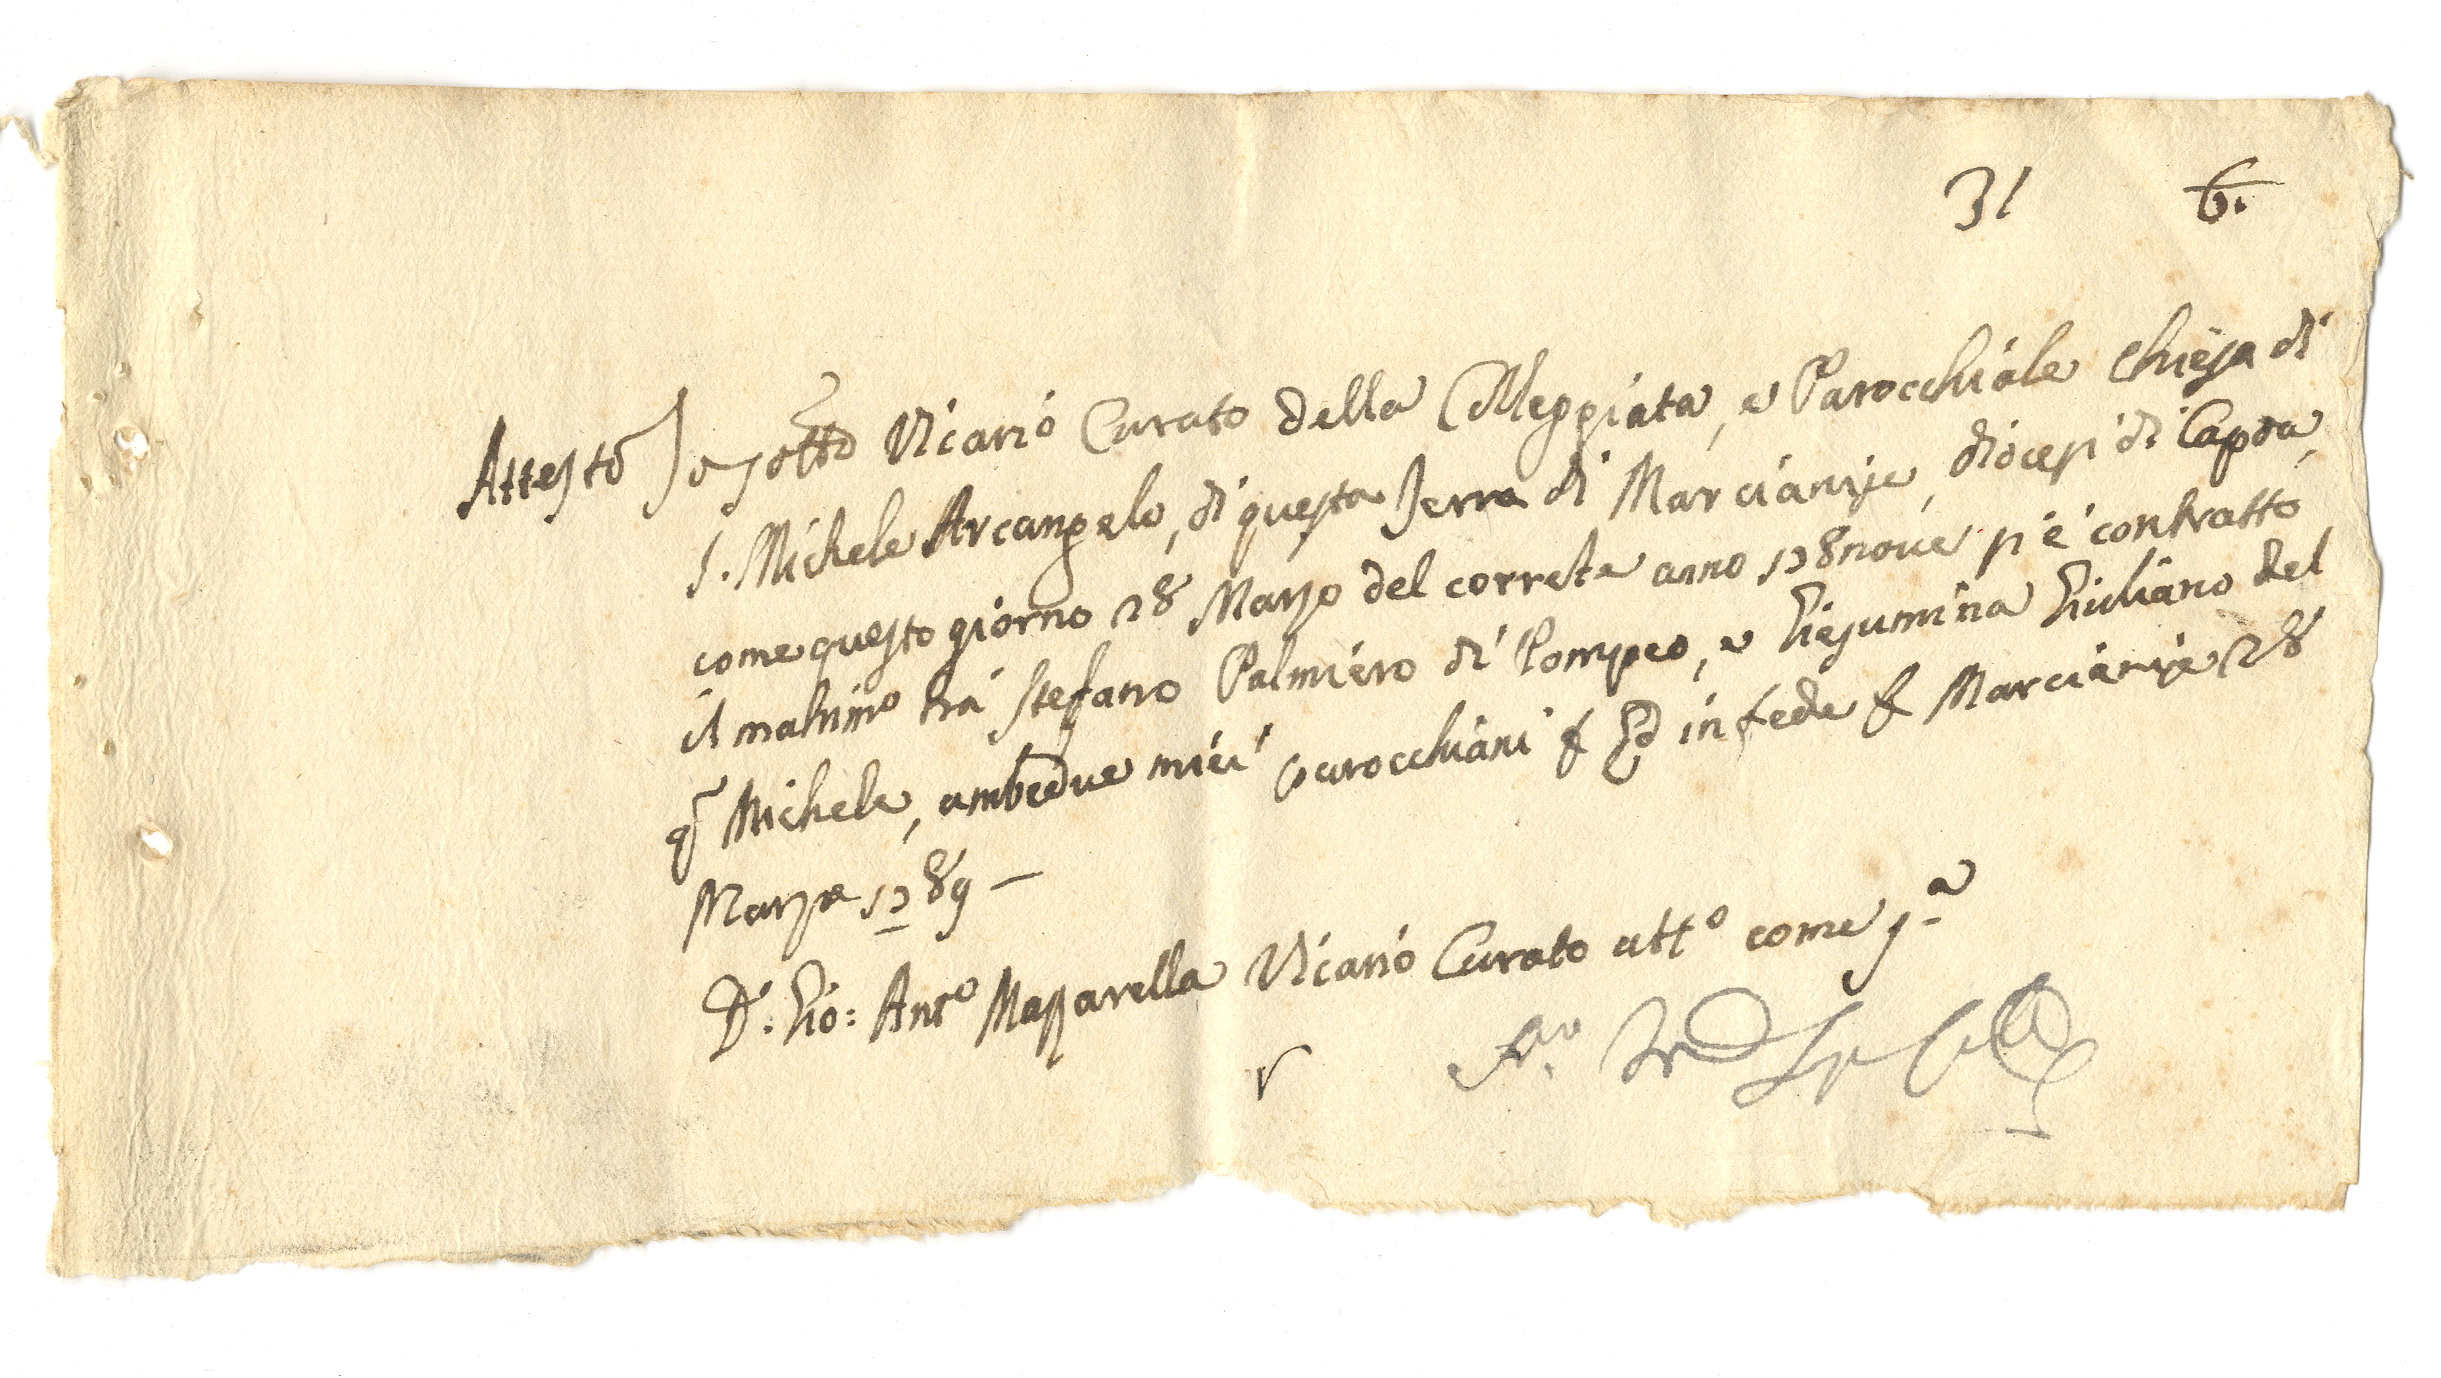 31 6.
Attesto Io sotto Vicario Curato della Colleggiata, e Parocchiale Chiesa di
S. Michele Arcangelo, di questa Terra di Marcianise, diocesi di Capoa,
come questo giorno 28 Marzo del correte anno 178nove si è contratto
il matrimo trà Stefano Palmiero di Pompeo, e Giesumina Giuliano del
qm Michele, ambedue miei parocchiani & Ed in fede & Marcianise 28
Marzo 1789 —
D. Gio: Anto Mazzarella Vicario Curato atto come sa